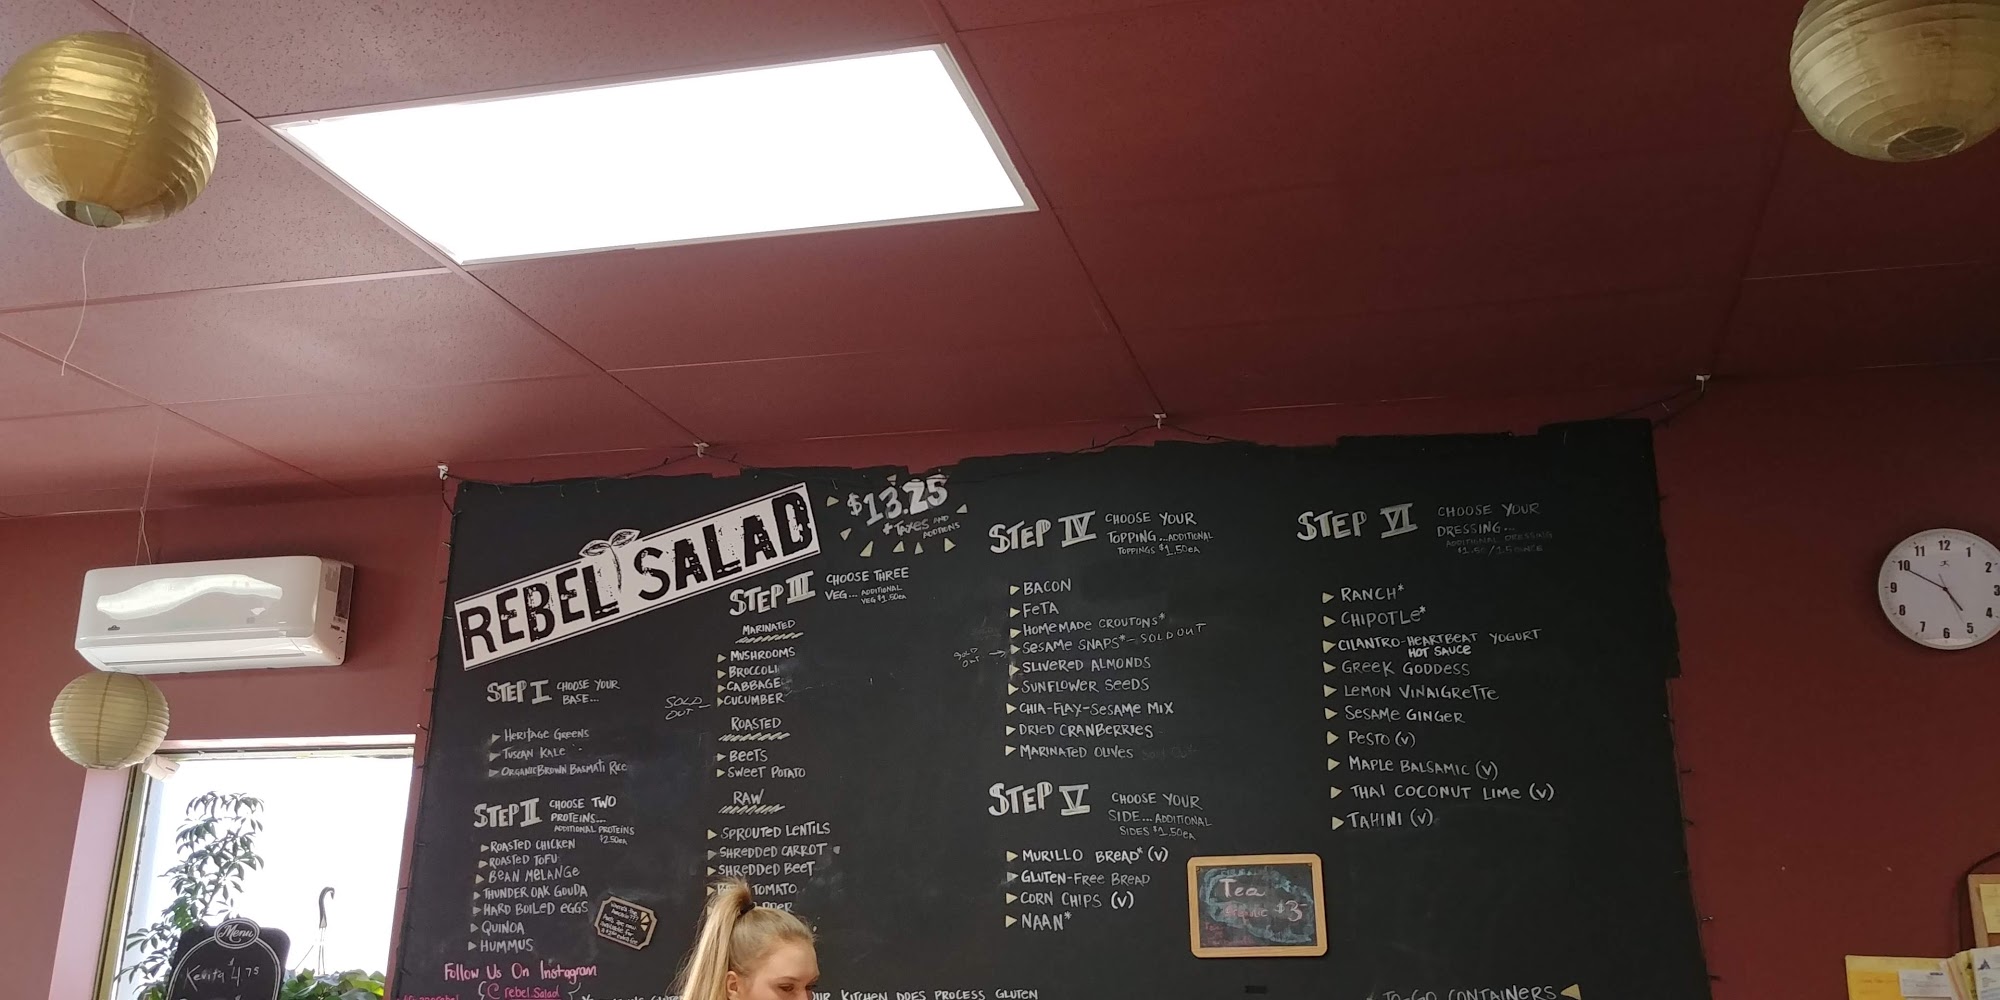 REBEL SALAD
$13.25
+ TAXES AND
ADDITIONS
STEP I CHOOSE YOUR
BASE...
HERITAGE GREENS
TUSCAN KALE
ORGANIC BROWN BASMATI RICE
STEP II CHOOSE TWO
PROTEINS...
ADDITIONAL PROTEINS
$2.50EA
ROASTED CHICKEN
ROASTED TOFU
BEAN MELANGE
THUNDER OAK GOUDA
HARD BOILED EGGS
QUINOA
HUMMUS
Follow Us On Instagram
@rebel.Salad
STEP III CHOOSE THREE
VEG... ADDITIONAL
VEG $1.50EA
MARINATED
MUSHROOMS
BROCCOLI
CABBAGE
CUCUMBER
SOLD
OUT
ROASTED
BEETS
SWEET POTATO
RAW
SPROUTED LENTILS
SHREDDED CARROT
SHREDDED BEET
TOMATO
STEP IV CHOOSE YOUR
TOPPING... ADDITIONAL
TOPPINGS $1.50EA
BACON
FETA
HOMEMADE CROUTONS*
SESAME SNAPS* - SOLD OUT
SOLD
OUT
SLIVERED ALMONDS
SUNFLOWER SEEDS
CHIA-FLAX-SESAME MIX
DRIED CRANBERRIES
MARINATED OLIVES
STEP V CHOOSE YOUR
SIDE... ADDITIONAL
SIDES $1.50EA
MURILLO BREAD* (V)
GLUTEN-FREE BREAD
CORN CHIPS (V)
NAAN*
STEP VI CHOOSE YOUR
DRESSING...
ADDITIONAL DRESSING
RANCH*
CHIPOTLE*
CILANTRO-HEARTBEAT YOGURT
HOT SAUCE
GREEK GODDESS
LEMON VINAIGRETTE
SESAME GINGER
PESTO (V)
MAPLE BALSAMIC (V)
THAI COCONUT LIME (V)
TAHINI (V)
Tea
$3-
KITCHEN DOES PROCESS GLUTEN
TO-GO CONTAINERS
Menu
Kevita $4.75
11 12 1
10 2
9 3
8 4
7 6 5